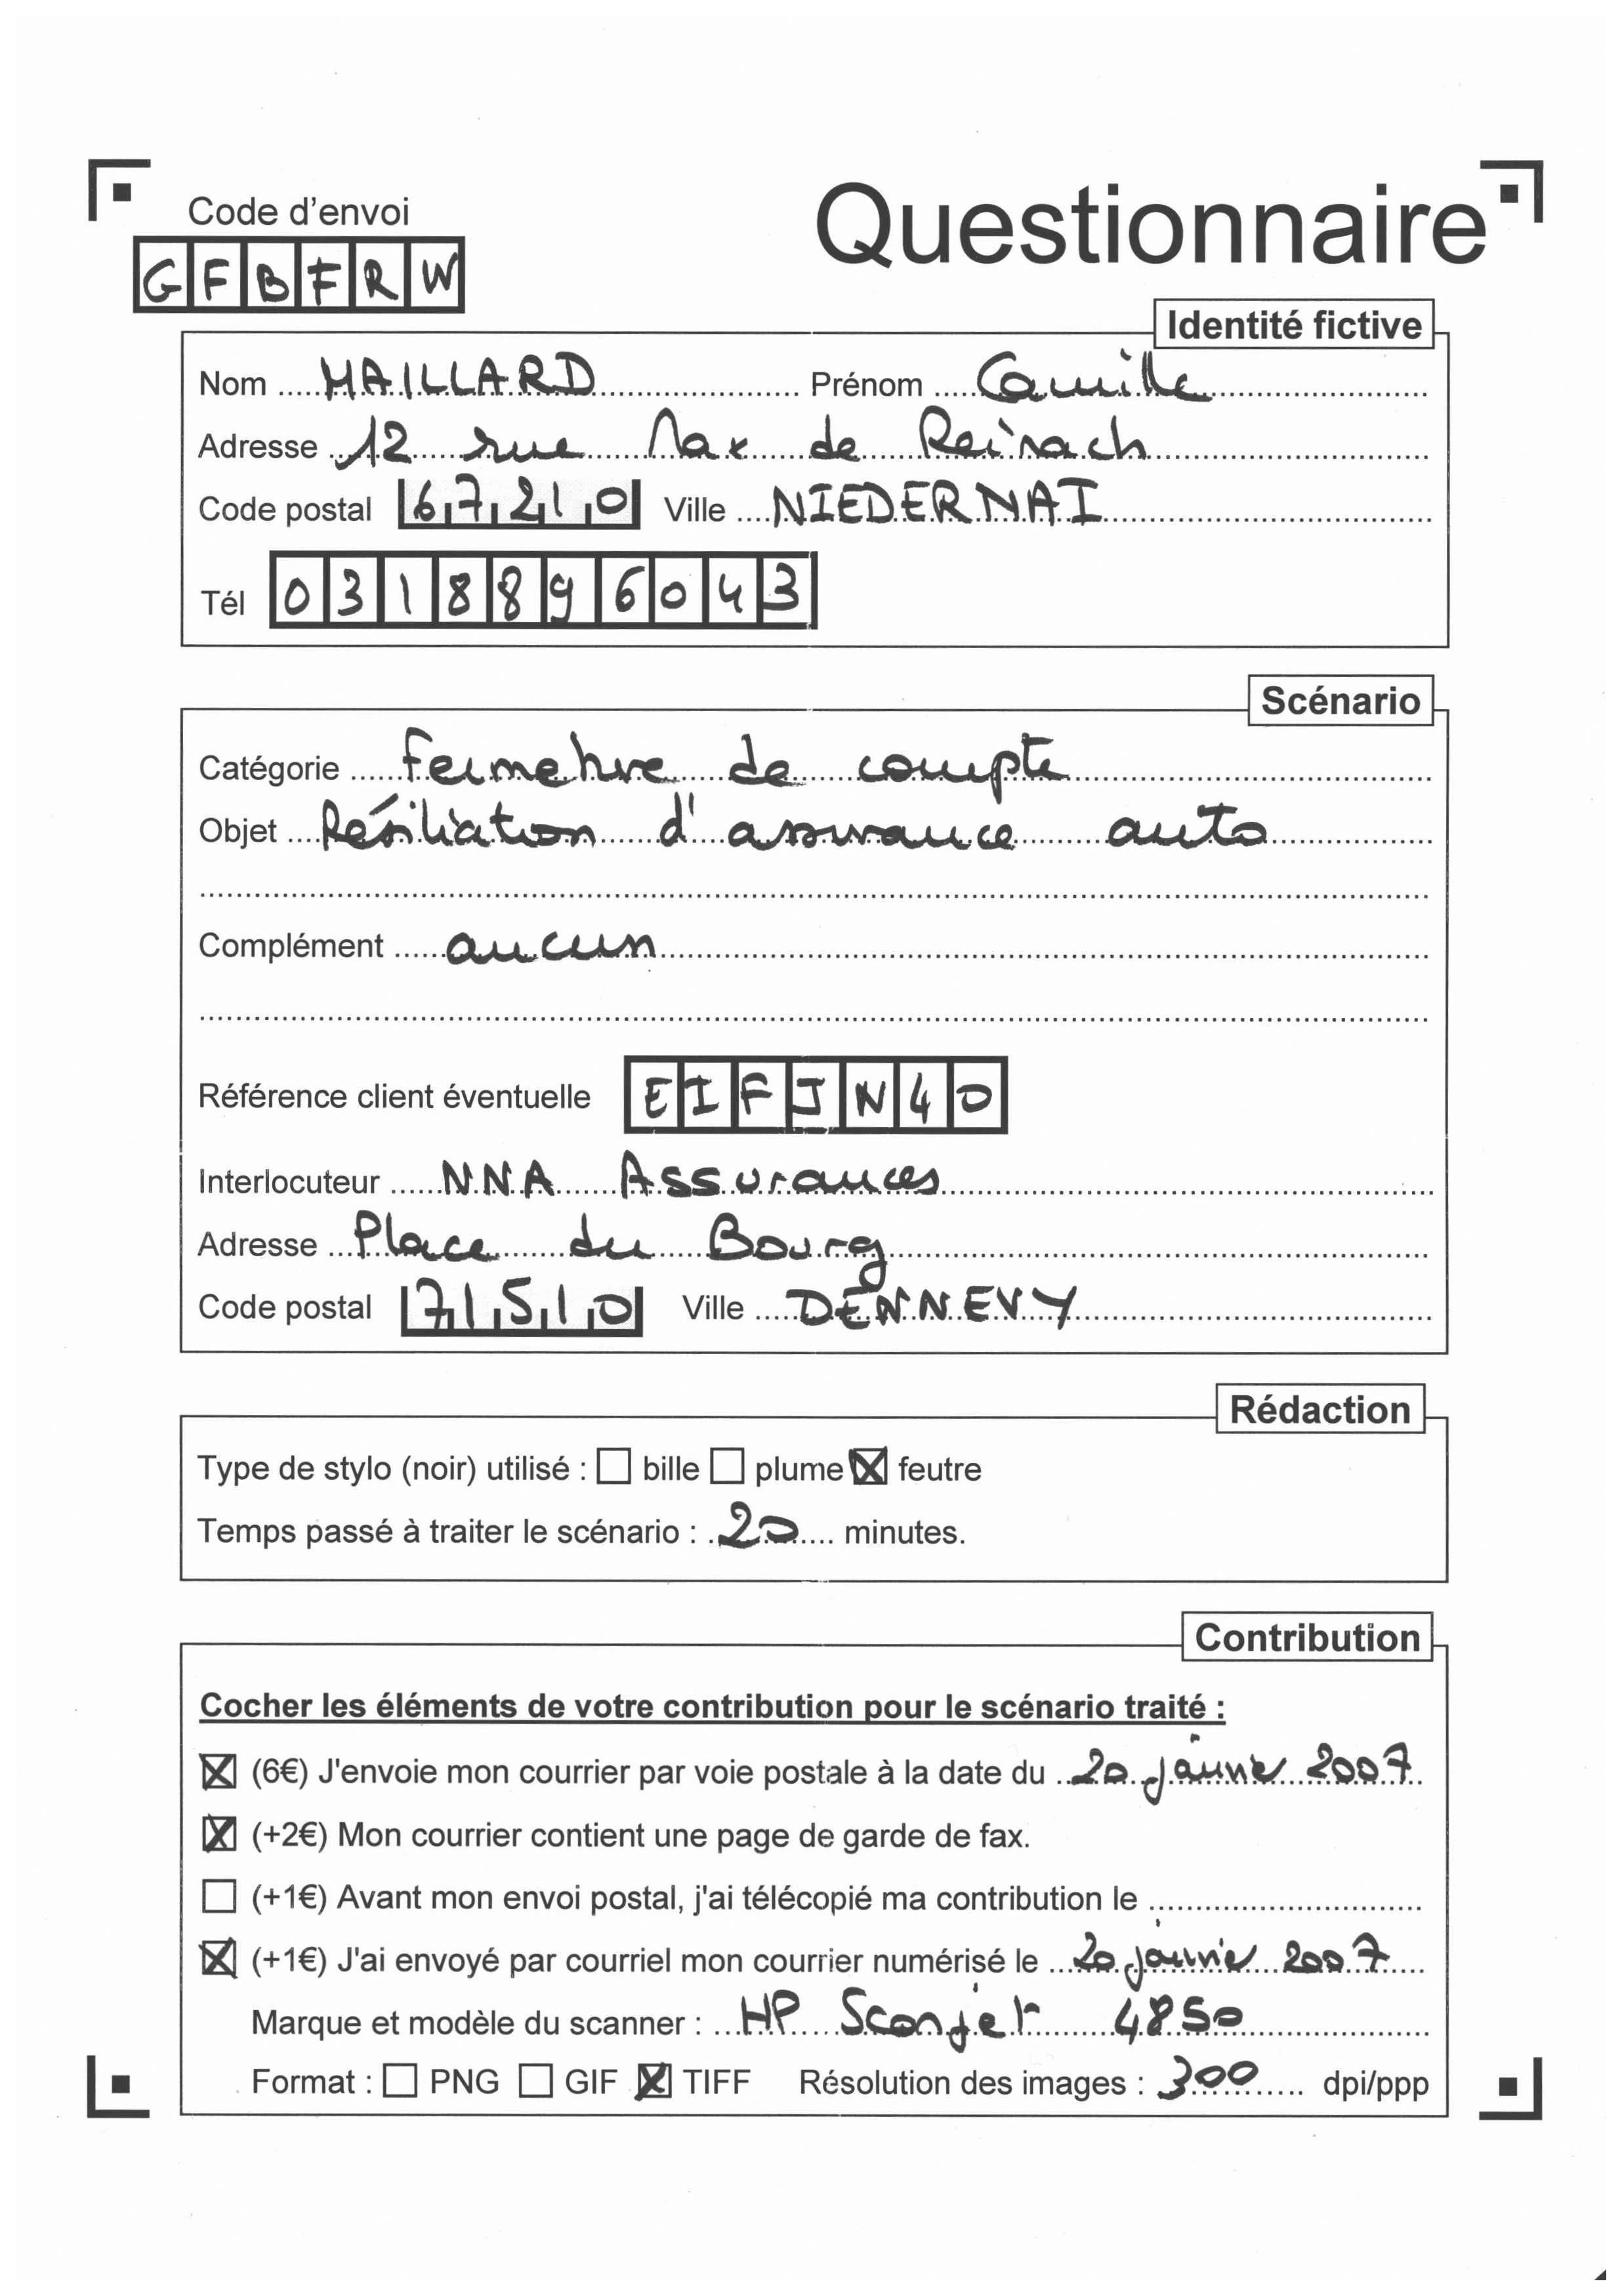 Code d'envoi
Questionnaire
GFBFRW
Identité fictive
Nom MAILLARD Prénom Camille
Adresse 12 rue Max de Reinach
Code postal 67210 Ville NIEDERNAI
Tél 0318896043
Scénario
Catégorie Fermeture de compte
Objet Résiliation d'assurance auto
Complément aucun
Référence client éventuelle EIFJN40
Interlocuteur NNA Assurances
Adresse Place du Bourg
Code postal 71510 Ville DENNEVY
Rédaction
Type de stylo (noir) utilisé : ☐ bille ☐ plume ☒ feutre
Temps passé à traiter le scénario : 20 minutes.
Contribution
Cocher les éléments de votre contribution pour le scénario traité :
☒ (6€) J'envoie mon courrier par voie postale à la date du 20 janvier 2007
☒ (+2€) Mon courrier contient une page de garde de fax.
☐ (+1€) Avant mon envoi postal, j'ai télécopié ma contribution le
☒ (+1€) J'ai envoyé par courriel mon courrier numérisé le 20 janvier 2007
Marque et modèle du scanner : HP Scanjet 4850
Format : ☐ PNG ☐ GIF ☒ TIFF Résolution des images : 300 dpi/ppp